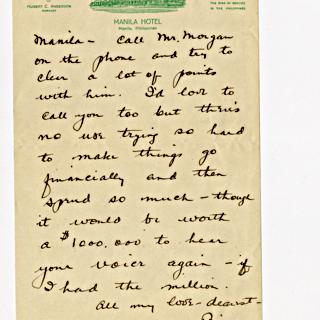 HUBERT C. ANDERSON
MANAGER
THE RING OF SERVICE
IN THE PHILIPPINES
MANILA HOTEL
Manila, Philippines
Manila - Call Mr. Morgan
on the phone and try to
clear a lot of points
with him. I'd love to
call you too but there's
no use trying so hard
to make things go
financially and then
spend so much - though
it would be worth
a $1000,000 to hear
your voice again - if
I had the million.
All my love - dearest -